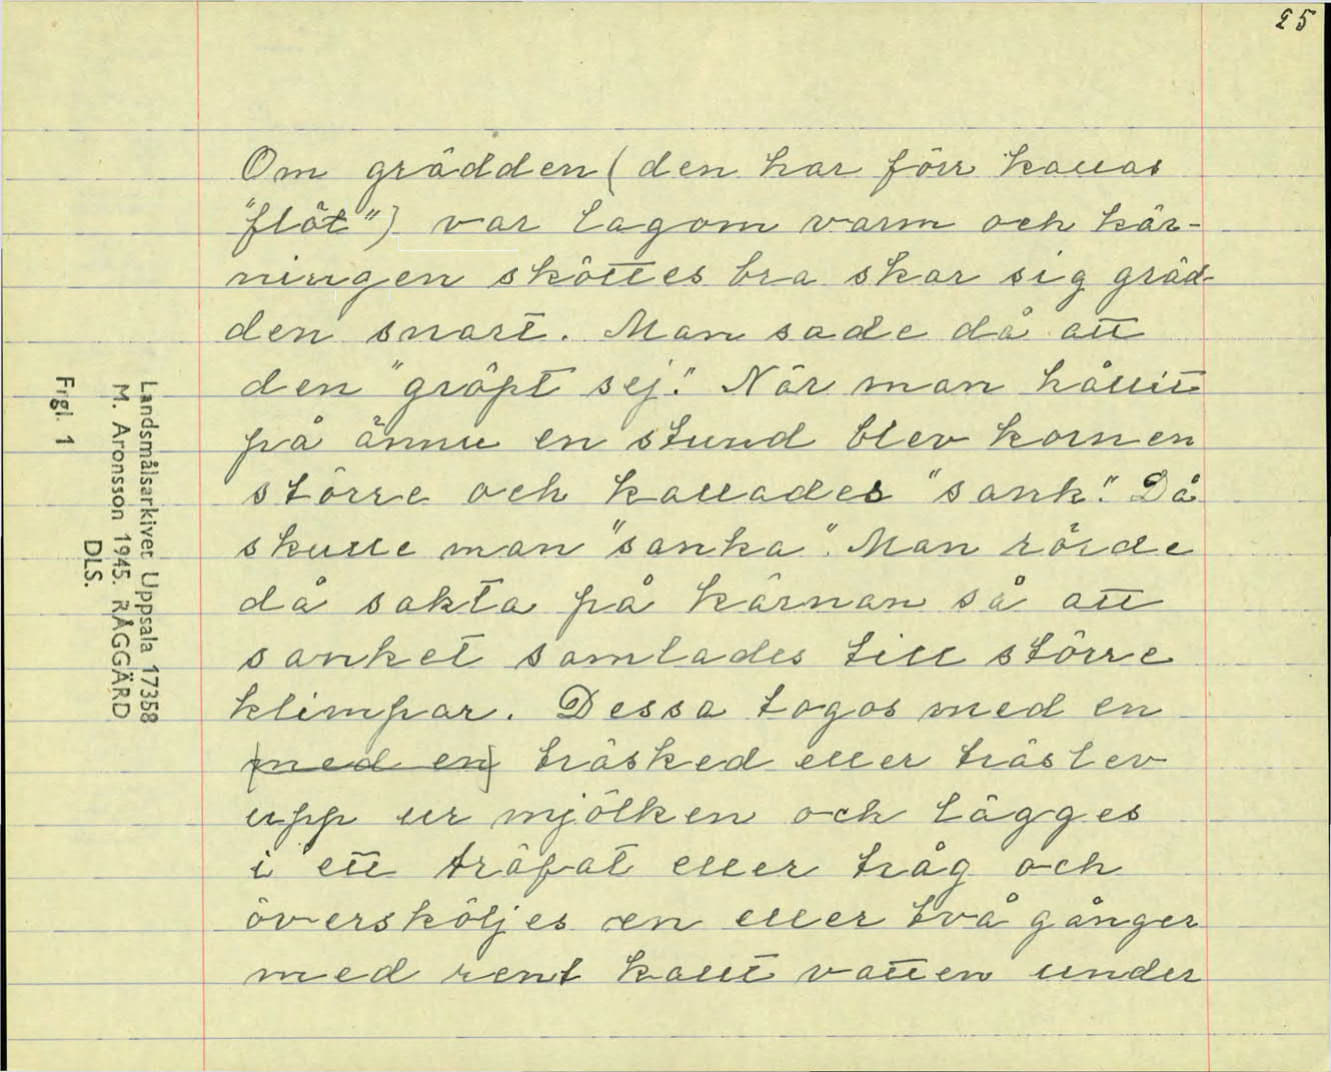 25
Om grädden (den har förr kallas
"flöt") var lagom varm och kär-
ningen sköttes bra skar sig gräd-
den snart. Man sade då att
den "gröpt sej." När man hållit
på ännu en stund blev kornen
större och kallades "sank". Då
skulle man "sanka". Man rörde
då sakta på kärnan så att
sanket samlades till större
klimpar. Dessa togos med en
(med en) träsked eller träslev
upp ur mjölken och lägges
i ett träfat eller tråg och
översköljes en eller två gånger
med rent kallt vatten under
Landsmålsarkivet Uppsala 17358
M. Aronsson 1945. RÅGGÄRD
DLS.
Frgl. 1